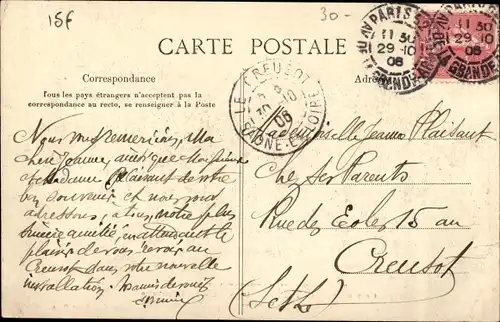 15f
30-
CARTE POSTALE
PARIS
11 30
29-10
06
AV. DE LA GRANDE
PARIS
11 30
29-10
06
GRANDE
Correspondance
Tous les pays étrangers n'acceptent pas la
correspondance au recto, se renseigner à la Poste
LE CREUSOT
30-10
06
SAONE-ET-LOIRE
Nous vous remercions, Ma
chère Jeanne, ainsi que Monsieur
et Madame Plaisant de votre
bon souvenir et nous vous
adressons, a tous, notre plus
sincère amitié, en attendant le
plaisir de vous revoir au
Creusot dans votre nouvelle
installation.
Mademoiselle Jeanne Plaisant
Chez Ses Parents
Rue des Ecoles 15 au
Creusot